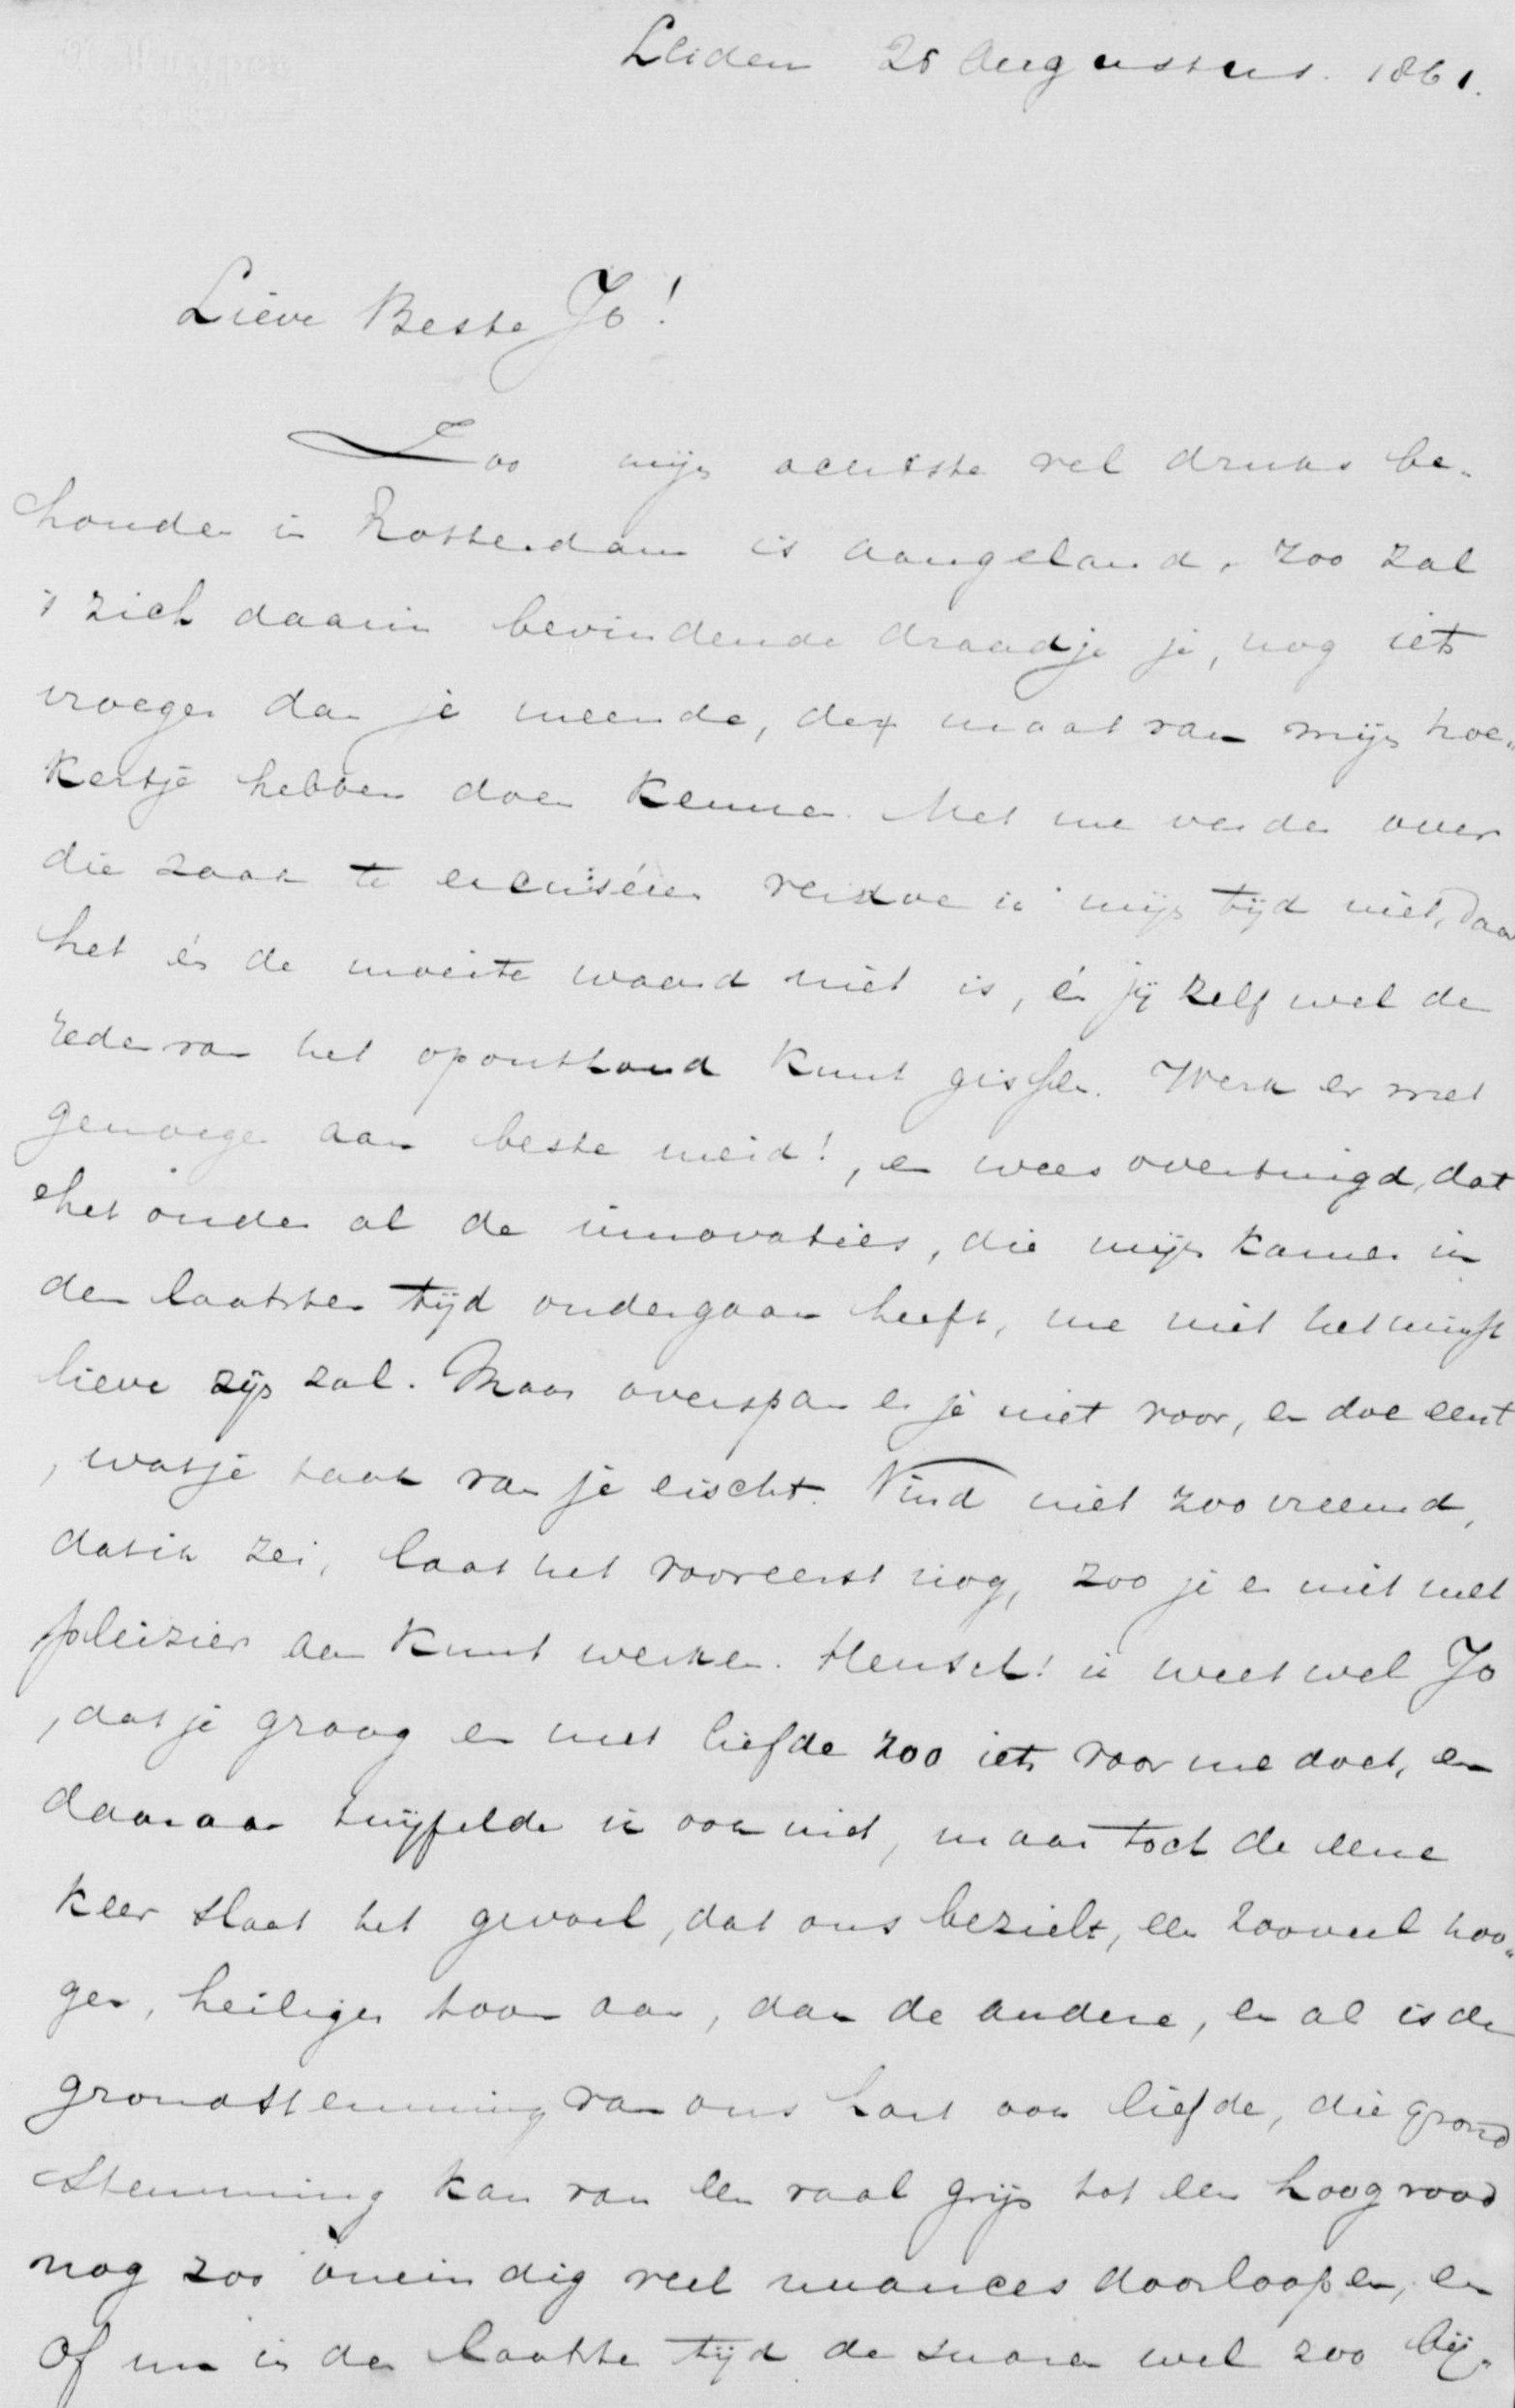 Leiden 28 Augustus. 1861.
Lieve Beste Jo!
Zoo mijn achtste vel druks be-
houden in Rotterdam is aangeland, zoo zal
't zich daarin bevindende draadje je, nog iets
vroeger dan je meende, de maat van mijn hoe-
kertje hebben doen kennen. Met me verder over
die zaak te excuséren verdoe ik mijn tijd niet, daar
het én de moeite waard niet is, én jij zelf wel de
reden van het oponthoud kunt gissen. Werk er met
genoegen aan beste meid!, en wees overtuigd, dat
het onder al de innovaties, die mijn kamer in
den laatsten tijd ondergaan heeft, me niet het minst
lieve zijn zal. Maar overspan er je niet voor, en doe eerst
, wat je taak van je eischt. Vind niet zoo vreemd,
dat ik zei, laat het vooreerst nog, zoo je er niet met
pleizier aan kunt werken. Heusch! ik weet wel Jo
, dat je graag en met liefde zoo iets voor me doet, en
daaraan twijfelde ik ook niet, maar toch de eene
keer slaat het gevoel, dat ons bezielt, een zooveel hoo-
ger, heiliger toon aan, dan de andere, en al is de
grondstemming van ons hart ook liefde, die grond
stemming kan van een vaal grijs tot een hoog rood
nog zoo oneindig veel nuances doorloopen, en
of nu in den laatste tijd de snaren wel zoo bij-